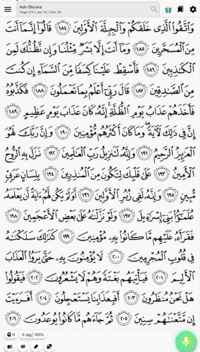 Ash-Shu'ara
وَٱتَّقُوا۟ ٱلَّذِى خَلَقَكُمْ وَٱلْجِبِلَّةَ ٱلْأَوَّلِينَ ١٨٤ قَالُوٓا۟ إِنَّمَآ أَنتَ
مِنَ ٱلْمُسَحَّرِينَ ١٨٥ وَمَآ أَنتَ إِلَّا بَشَرٌ مِّثْلُنَا وَإِن نَّظُنُّكَ لَمِنَ
ٱلْكَـٰذِبِينَ ١٨٦ فَأَسْقِطْ عَلَيْنَا كِسَفًا مِّنَ ٱلسَّمَآءِ إِن كُنتَ
مِنَ ٱلصَّـٰدِقِينَ ١٨٧ قَالَ رَبِّىٓ أَعْلَمُ بِمَا تَعْمَلُونَ ١٨٨ فَكَذَّبُوهُ
فَأَخَذَهُمْ عَذَابُ يَوْمِ ٱلظُّلَّةِ إِنَّهُۥ كَانَ عَذَابَ يَوْمٍ عَظِيمٍ ١٨٩
إِنَّ فِى ذَٰلِكَ لَـَٔايَةً وَمَا كَانَ أَكْثَرُهُم مُّؤْمِنِينَ ١٩٠ وَإِنَّ رَبَّكَ لَهُوَ
ٱلْعَزِيزُ ٱلرَّحِيمُ ١٩١ وَإِنَّهُۥ لَتَنزِيلُ رَبِّ ٱلْعَـٰلَمِينَ ١٩٢ نَزَلَ بِهِ ٱلرُّوحُ
ٱلْأَمِينُ ١٩٣ عَلَىٰ قَلْبِكَ لِتَكُونَ مِنَ ٱلْمُنذِرِينَ ١٩٤ بِلِسَانٍ عَرَبِىٍّ
مُّبِينٍ ١٩٥ وَإِنَّهُۥ لَفِى زُبُرِ ٱلْأَوَّلِينَ ١٩٦ أَوَلَمْ يَكُن لَّهُمْ ءَايَةً أَن يَعْلَمَهُۥ
عُلَمَـٰٓؤُا۟ بَنِىٓ إِسْرَٰٓءِيلَ ١٩٧ وَلَوْ نَزَّلْنَـٰهُ عَلَىٰ بَعْضِ ٱلْأَعْجَمِينَ ١٩٨
فَقَرَأَهُۥ عَلَيْهِم مَّا كَانُوا۟ بِهِۦ مُؤْمِنِينَ ١٩٩ كَذَٰلِكَ سَلَكْنَـٰهُ
فِى قُلُوبِ ٱلْمُجْرِمِينَ ٢٠٠ لَا يُؤْمِنُونَ بِهِۦ حَتَّىٰ يَرَوُا۟ ٱلْعَذَابَ
ٱلْأَلِيمَ ٢٠١ فَيَأْتِيَهُم بَغْتَةً وَهُمْ لَا يَشْعُرُونَ ٢٠٢ فَيَقُولُوا۟
هَلْ نَحْنُ مُنظَرُونَ ٢٠٣ أَفَبِعَذَابِنَا يَسْتَعْجِلُونَ ٢٠٤ أَفَرَءَيْتَ
إِن مَّتَّعْنَـٰهُمْ سِنِينَ ٢٠٥ ثُمَّ جَآءَهُم مَّا كَانُوا۟ يُوعَدُونَ ٢٠٦